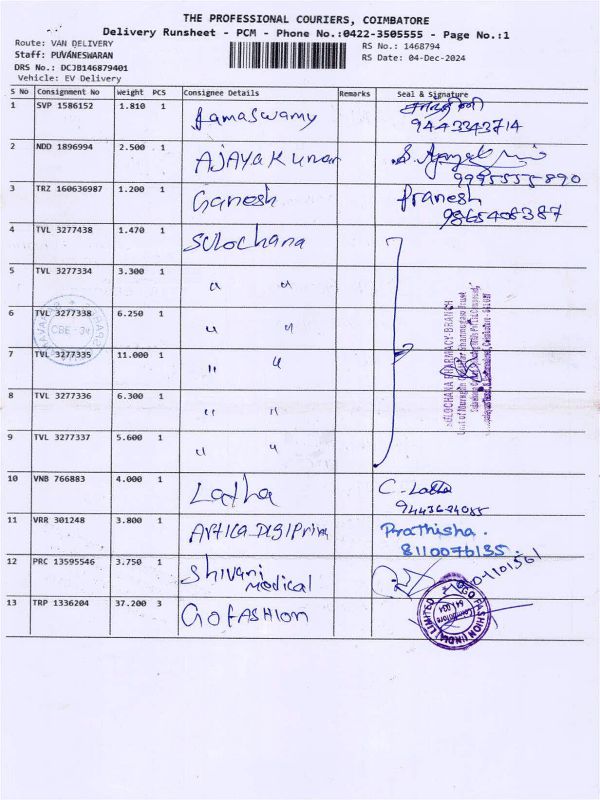 THE PROFESSIONAL COURIERS, COIMBATORE
Delivery Runsheet - PCM - Phone No.:0422-3505555 - Page No.:1
Route: VAN DELIVERY
RS No.: 1468794
Staff: PUVANESWARAN
RS Date: 04-Dec-2024
DRS No.: DCJB146879401
Vehicle: EV Delivery
S No Consignment No Weight PCS Consignee Details Remarks Seal & Signature
1 SVP 1586152 1.810 1 Ramaswamy
9443343714
2 NDD 1896994 2.500 1 AJAYAKUMAR
9995555890
3 TRZ 160636987 1.200 1 Ganesh Pranesh
9865408387
4 TVL 3277438 1.470 1 Sulochana
5 TVL 3277334 3.300 1 " "
6 TVL 3277338 6.250 1 " "
7 TVL 3277335 11.000 1 " "
8 TVL 3277336 6.300 1 " "
9 TVL 3277337 5.600 1 " "
CBE - 34
SULOCHANA PHARMACY-BRANCH
10 VNB 766883 4.000 1 Latha C. Latha
11 VRR 301248 3.800 1 Prathisha.
8110076135.
12 PRC 13595546 3.750 1 Shivani Medical
13 TRP 1336204 37.200 3 GO FASHION
GO FASHION (INDIA) LIMITED
Coimbatore